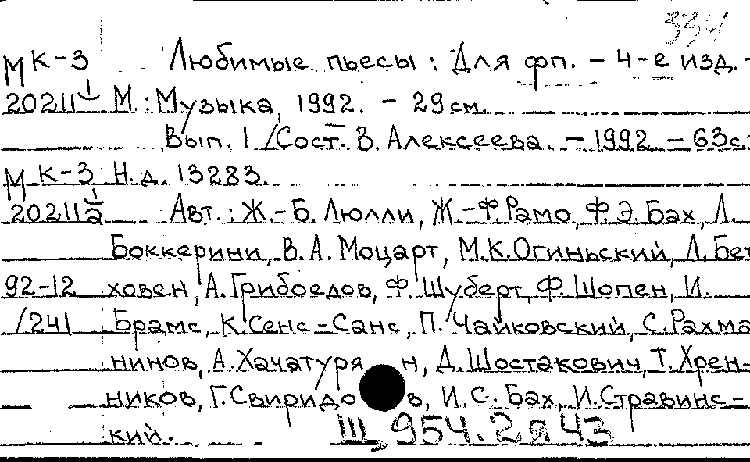 334
МК-3 Любимые пьесы : Для фп. - 4-е изд. -
20211 1 М. : Музыка, 1992. - 29 см.
Вып. 1 / Сост. В. Алексеева. - 1992 - 63 с.
МК-3 Н.д. 13283.
20211 1а Авт. : Ж.-Б. Люлли, Ж.-Ф. Рамо, Ф.Э. Бах, Л.
Боккерини, В.А. Моцарт, М.К. Огиньский, Л. Бет
92-12 ховен, А. Грибоедов, Ф. Шуберт, Ф. Шопен, И.
/241 Брамс, К. Сенс-Санс, П. Чайковский, С. Рахма
нинов, А. Хачатурян, Д. Шостакович, Т. Хрен-
ников, Г. Свиридов, И.С. Бах, И. Стравинс-
кий. Ш, 954.2я43